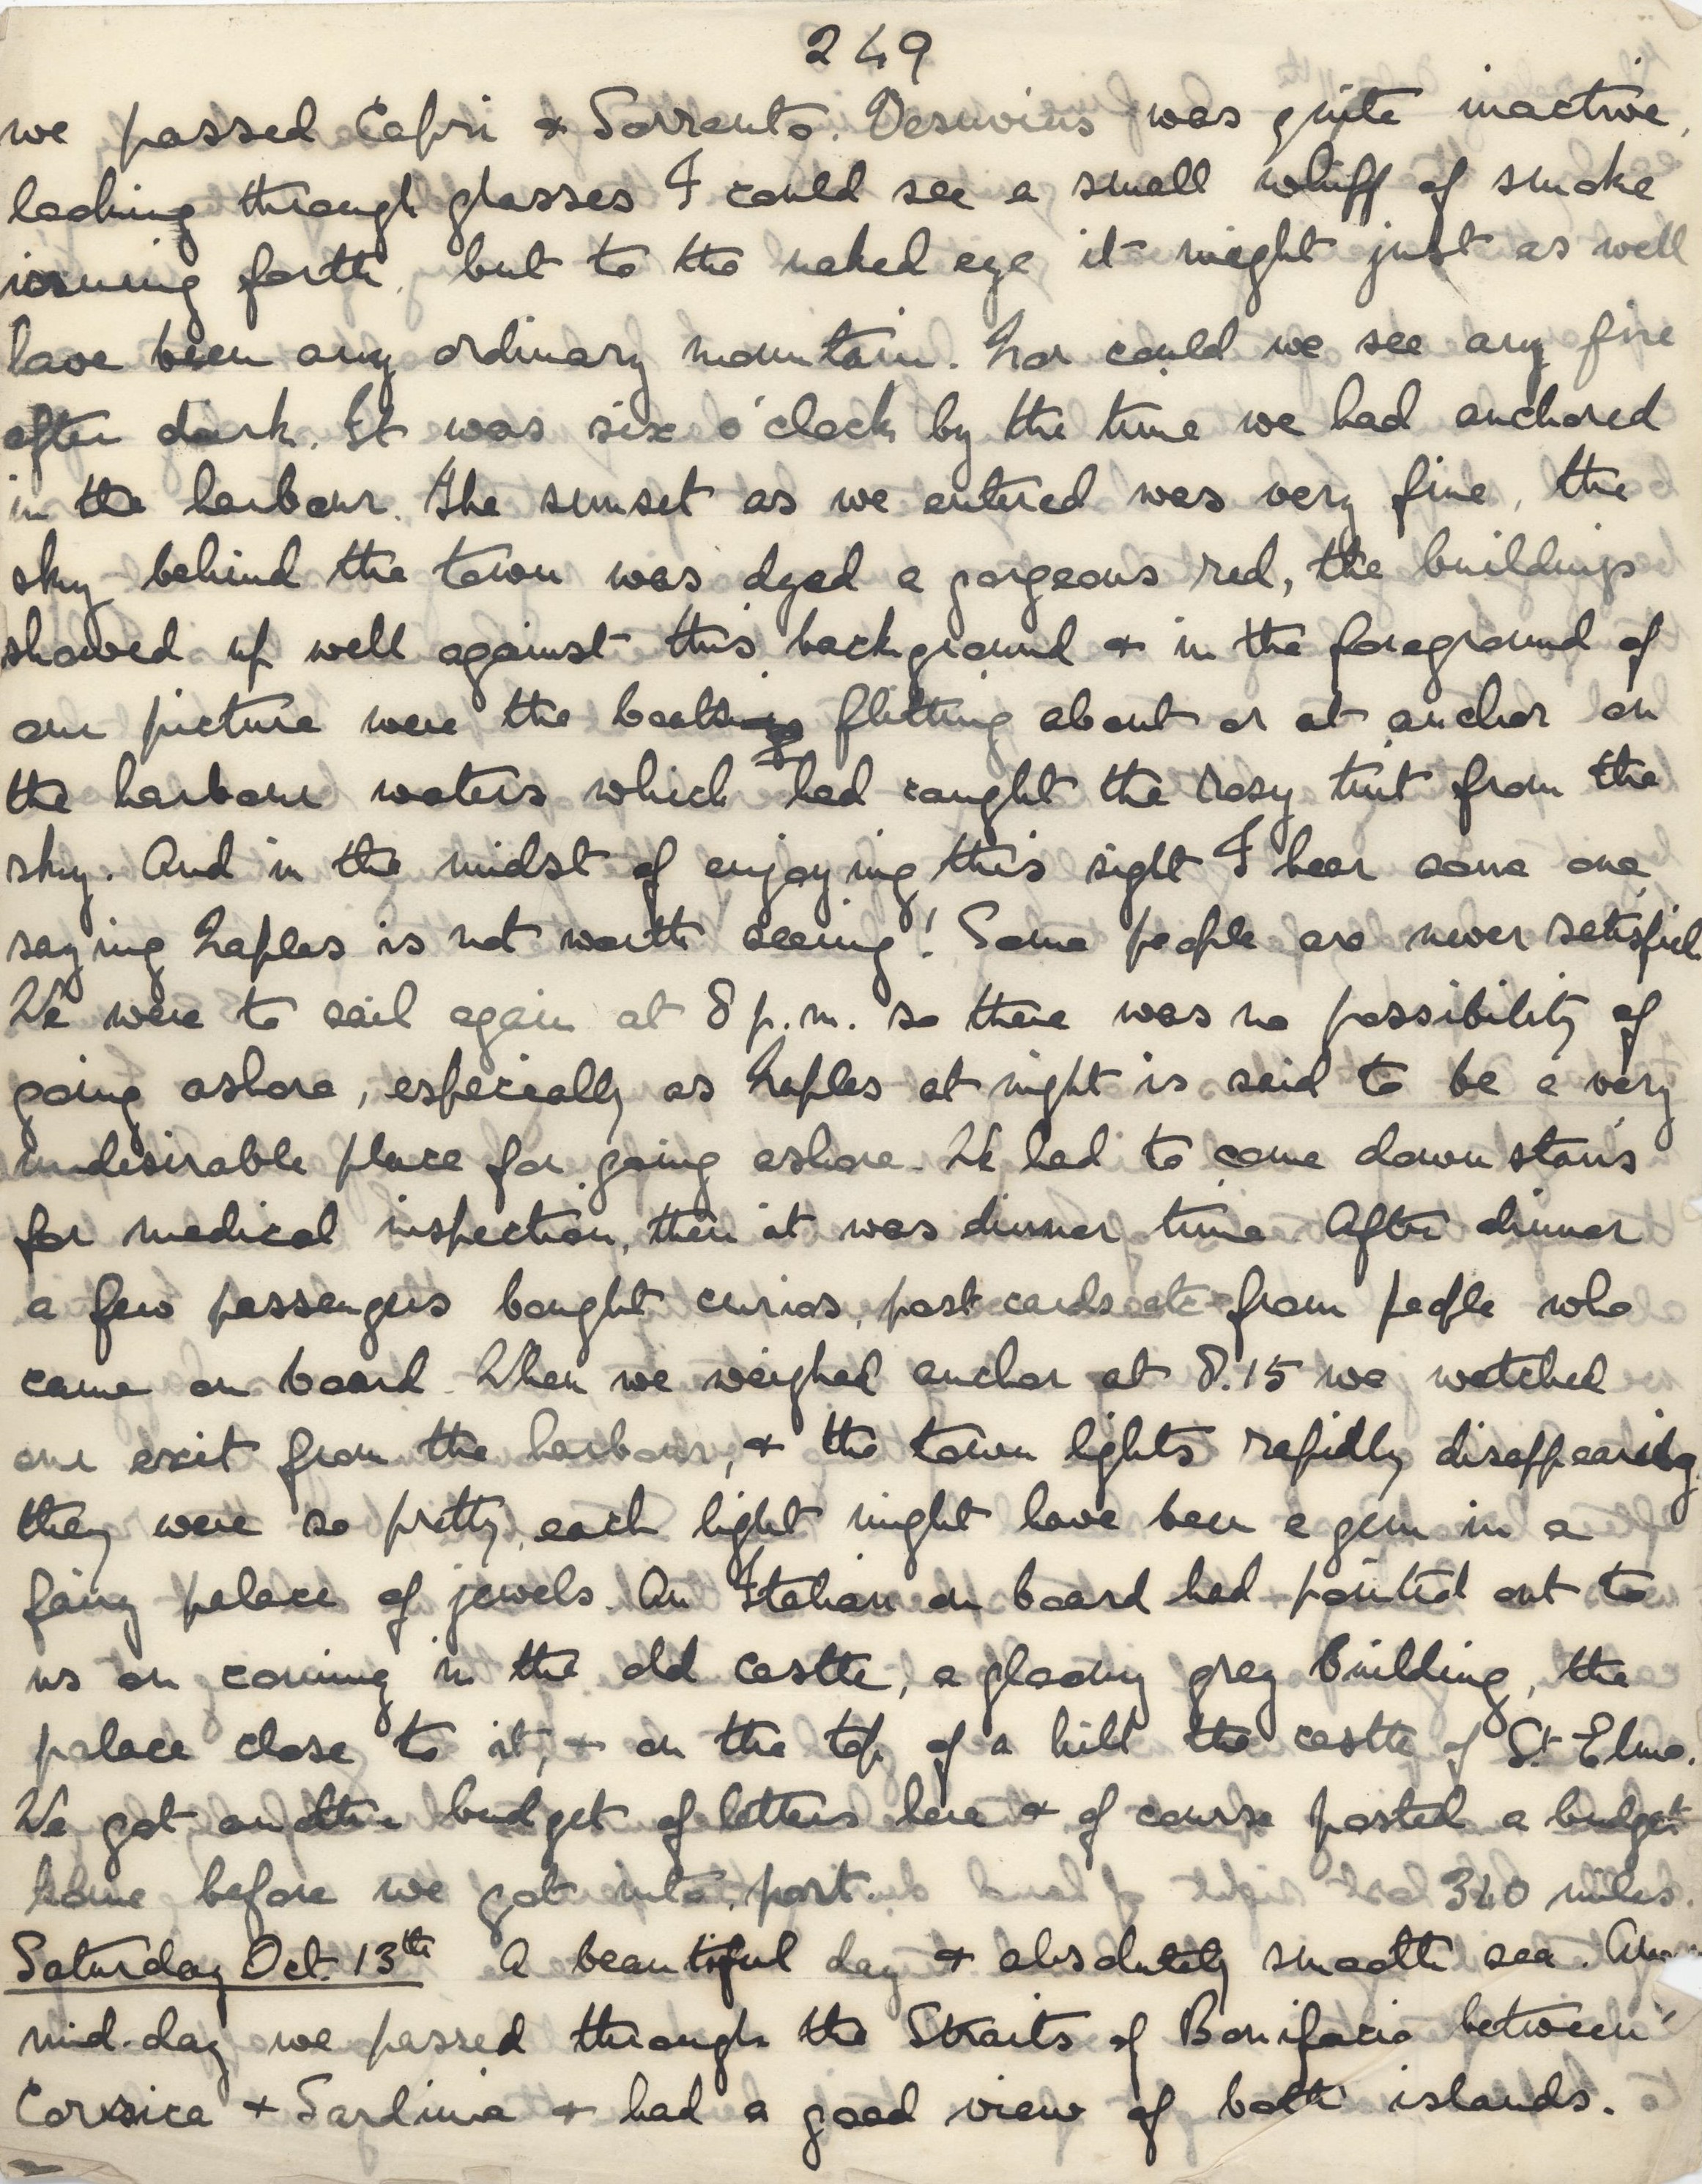 249
we passed Capri & Sorrento. Vesuvius was quite inactive,
looking through glasses I could see a small whiff of smoke
issuing forth, but to the naked eye it might just as well
have been any ordinary mountain. Nor could we see any fire
after dark. It was six o'clock by the time we had anchored
in the harbour. The sunset as we entered was very fine, the
sky behind the town was dyed a gorgeous red, the buildings
showed up well against this background & in the foreground of
our picture were the boats flitting about or at anchor on
the harbour waters which had caught the rosy tint from the
sky. And in the midst of enjoying this sight I hear some one
saying Naples is not worth seeing! Some people are never satisfied.
We were to sail again at 8 p.m. so there was no possibility of
going ashore, especially as Naples at night is said to be a very
undesirable place for going ashore. We had to come down stairs
for medical inspection, then it was dinner time. After dinner
a few passengers bought curios, post cards etc from people who
came on board. When we weighed anchor at 8.15 we watched
our exit from the harbour, & the town lights rapidly disappearing.
they were so pretty, each light might have been a gem in a
fairy palace of jewels. An Italian on board had pointed out to
us on coming in the old castle, a gloomy grey building, the
palace close to it, & on the top of a hill the castle of St. Elmo.
We got another budget of letters here & of course posted a budget
home before we got into port. 340 miles.
Saturday Oct. 13th A beautiful day & absolutely smooth sea.
mid-day we passed through the Straits of Bonifacio between
Corsica & Sardinia & had a good view of both islands.